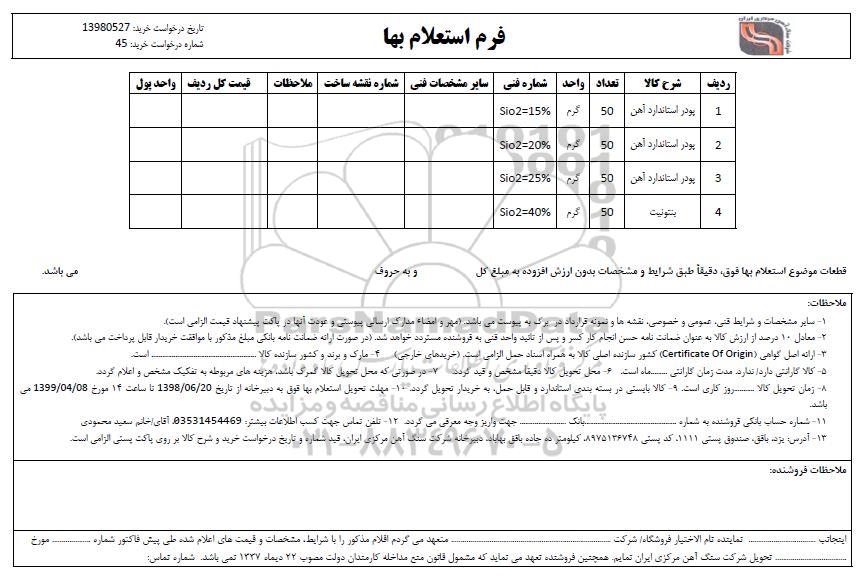 تاریخ درخواست خرید: 13980527
شماره درخواست خرید: 45
فرم استعلام بها
ردیف شرح کالا تعداد واحد شماره فنی سایر مشخصات فنی شماره نقشه ساخت ملاحظات قیمت کل ردیف واحد پول
1 پودر استاندارد آهن 50 گرم Sio2=15%
2 پودر استاندارد آهن 50 گرم Sio2=20%
3 پودر استاندارد آهن 50 گرم Sio2=25%
4 بنتونیت 50 گرم Sio2=40%
قطعات موضوع استعلام بها فوق، دقیقاً طبق شرایط و مشخصات بدون ارزش افزوده به مبلغ کل و به حروف می باشد.
ملاحظات:
۱- سایر مشخصات و شرایط فنی، عمومی و خصوصی، نقشه ها و نمونه قرارداد در برگ به پیوست می باشد. (مهر و امضاء مدارک ارسالی پیوستی و عودت آنها در پاکت پیشنهاد قیمت الزامی است).
۲- معادل ۱۰ درصد از ارزش کالا به عنوان ضمانت نامه حسن انجام کار کسر و پس از تائید واحد فنی به فروشنده مسترد خواهد شد. (در صورت ارائه ضمانت نامه بانکی مبلغ مذکور با موافقت خریدار قابل پرداخت می باشد).
۳- ارائه اصل گواهی (Certificate Of Origin) کشور سازنده اصلی کالا به همراه اسناد حمل الزامی است. (خریدهای خارجی) ۴- مارک و برند و کشور سازنده کالا .................... است.
۵- کالا گارانتی دارد/ ندارد. مدت زمان گارانتی ........ماه است. ۶- محل تحویل کالا دقیقا مشخص و قید گردد. ۷- در صورتی که محل تحویل کالا گمرک باشد، هزینه های مربوطه به تفکیک مشخص و اعلام گردد.
۸- زمان تحویل کالا ..........روز کاری است. ۹- کالا بایستی در بسته بندی استاندارد و قابل حمل، به خریدار تحویل گردد. ۱۰- مهلت تحویل استعلام بها فوق به دبیرخانه از تاریخ 1398/06/20 تا ساعت ۱۴ مورخ 1399/04/08 می
باشد.
۱۱- شماره حساب بانکی فروشنده به شماره ....................بانک .............. جهت واریز وجه معرفی می گردد. ۱۲- تلفن تماس جهت کسب اطلاعات بیشتر: 03531454469، آقای/خانم سعید محمودی
۱۳- آدرس: یزد، بافق، صندوق پستی ۱۱۱۱، کد پستی ۸۹۷۵۱۳۶۷۴۸، کیلومتر ده جاده بافق بهاباد، دبیرخانه شرکت سنگ آهن مرکزی ایران، قید شماره و تاریخ درخواست خرید و شرح کالا بر روی پاکت پستی الزامی است.
ملاحظات فروشنده:
اینجانب .................... نماینده تام الاختیار فروشگاه/ شرکت .................... متعهد می گردم اقلام مذکور را با شرایط، مشخصات و قیمت های اعلام شده طی پیش فاکتور شماره .................... مورخ
.................... تحویل شرکت سنگ آهن مرکزی ایران نمایم. همچنین فروشنده تعهد می نماید که مشمول قانون منع مداخله کارمندان دولت مصوب ۲۲ دیماه ۱۳۳۷ نمی باشد. شماره تماس:
ParsNamadData
پایگاه اطلاع رسانی مناقصه و مزایده
۰۲۱-۸۸۳۴۹۶۷۰-۵